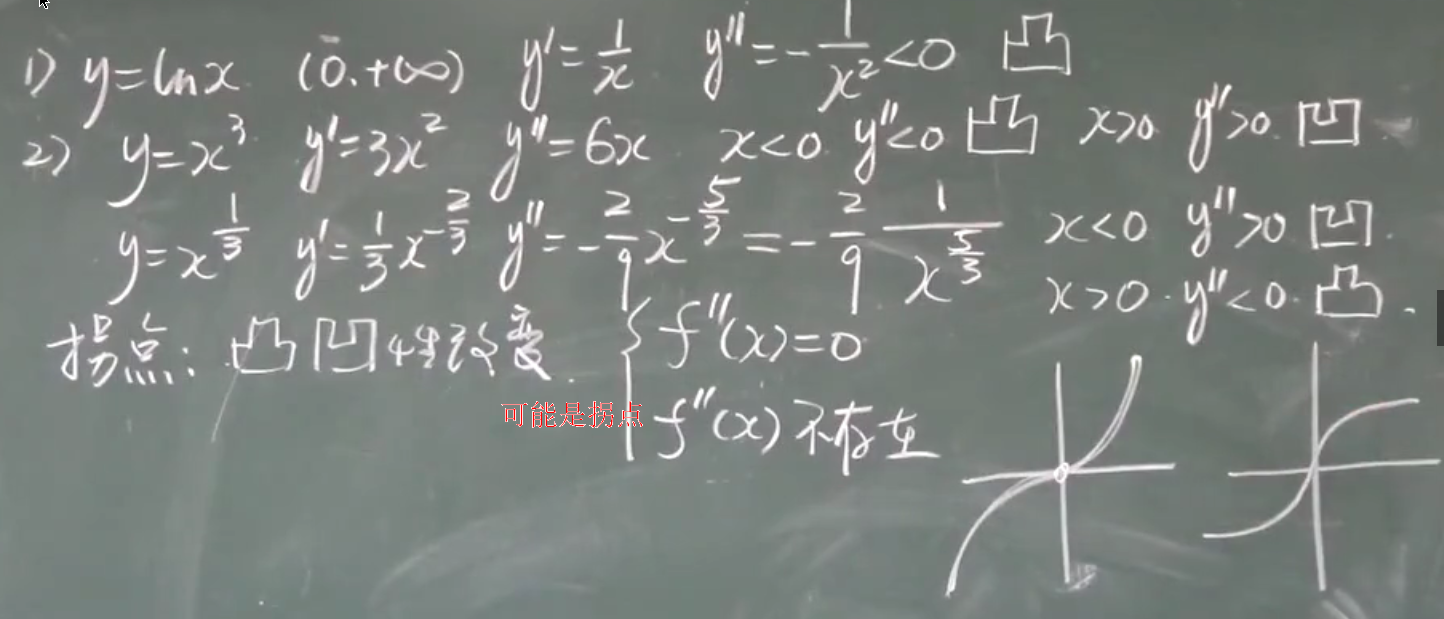 1) y=lnx (0.+∞) y'=1/x y''=-1/x²<0 凸
2) y=x³ y'=3x² y''=6x x<0 y''<0 凸 x>0 y''>0 凹.
y=x^(1/3) y'=1/3 x^(-2/3) y''=-2/9 x^(-5/3) = -2/9 1/x^(5/3) x<0 y''>0 凹.
x>0. y''<0. 凸.
拐点: 凸凹性改变. { f''(x)=0
可能是拐点 f''(x)不存在